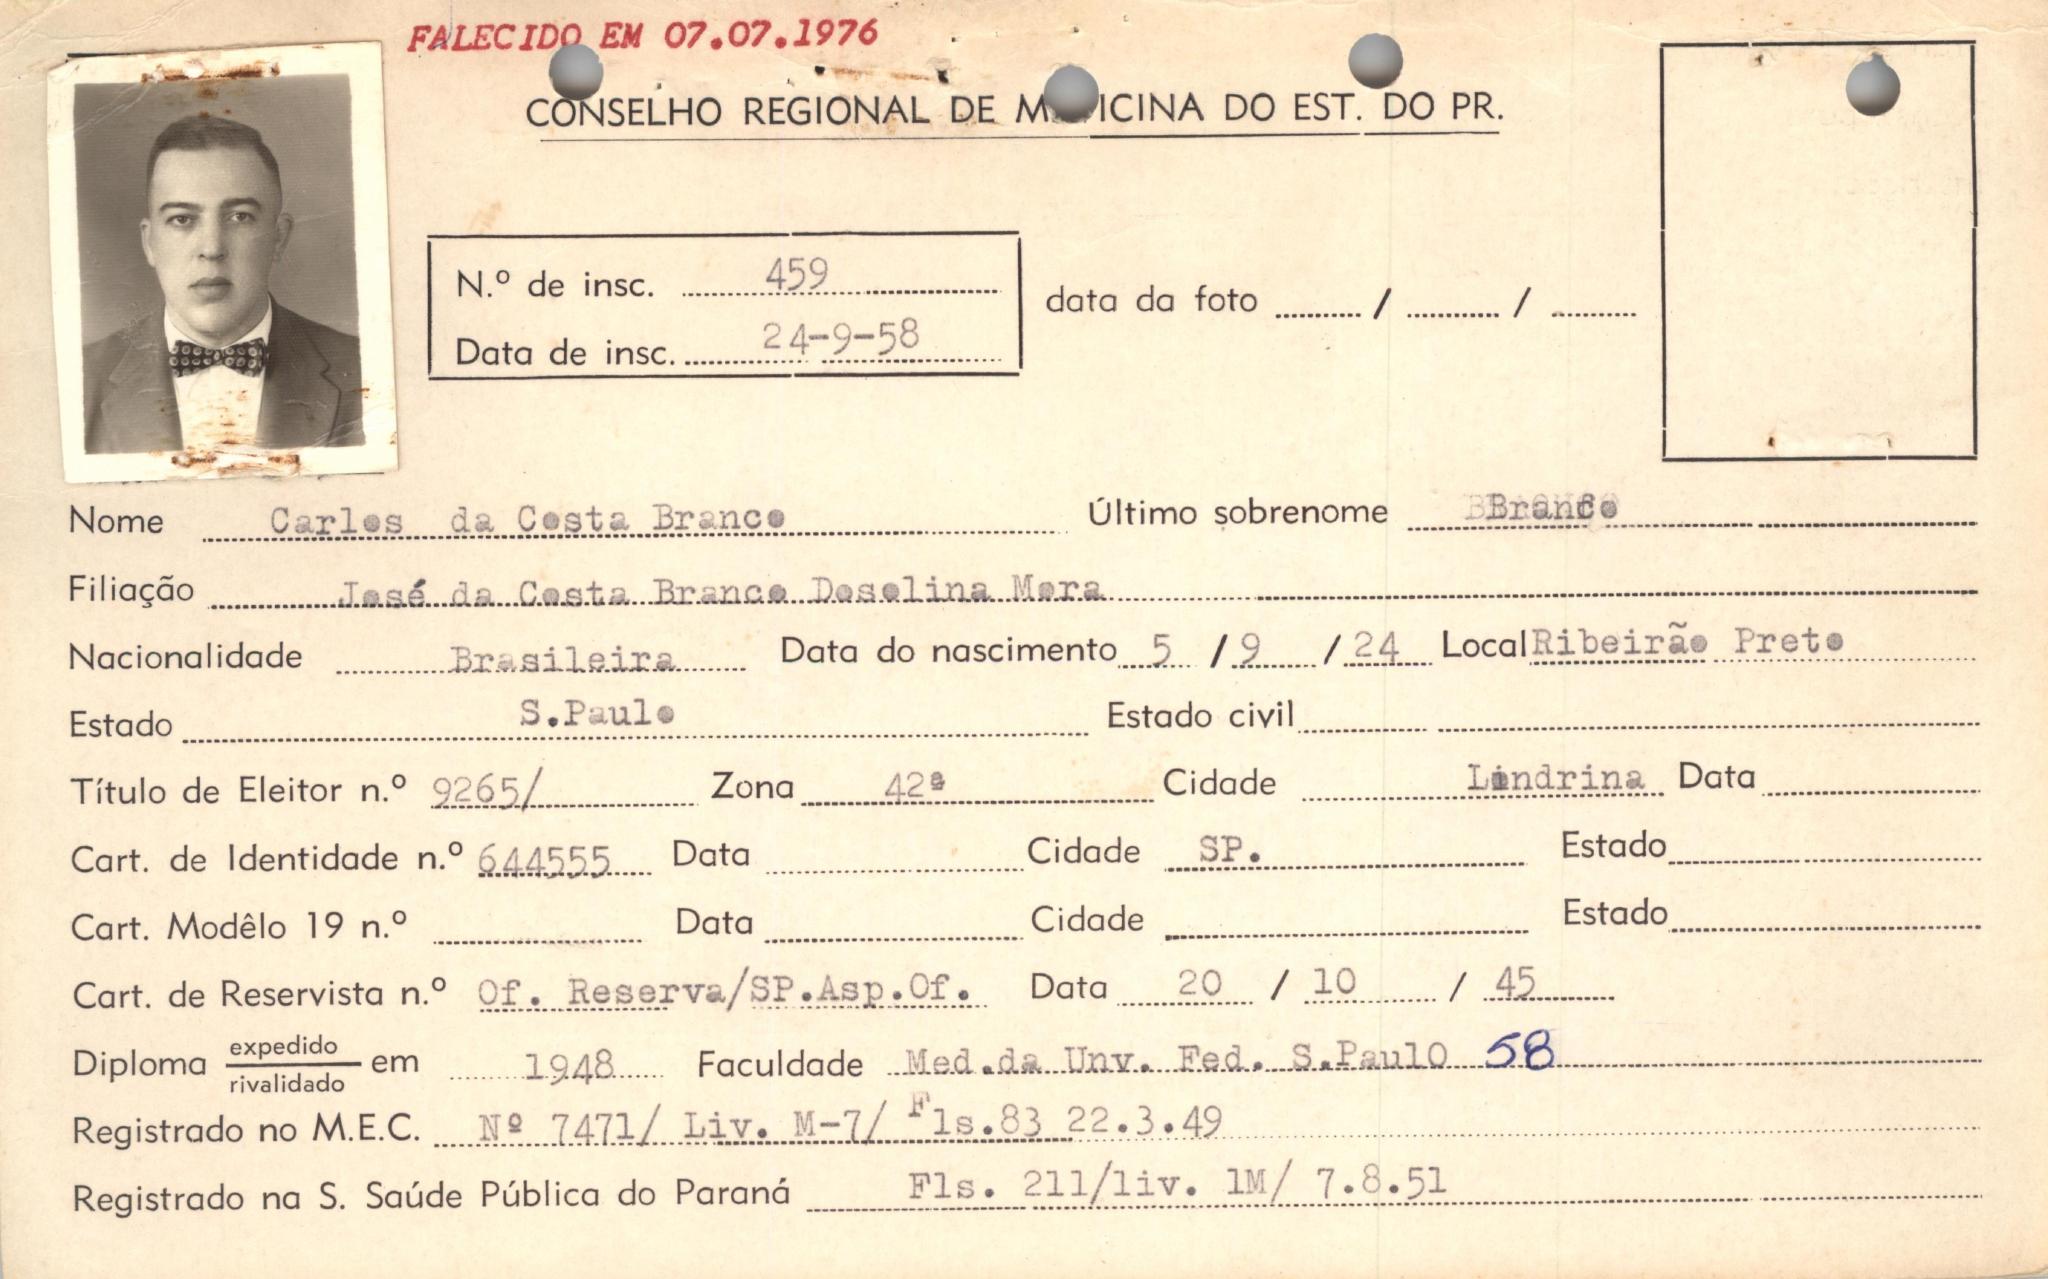 FALECIDO EM 07.07.1976
CONSELHO REGIONAL DE MEDICINA DO EST. DO PR.
N.º de insc. 459
Data de insc. 24-9-58
data da foto / /
Nome Carlos da Costa Branco Último sobrenome Branco
Filiação José da Costa Branco Dosolina Mora
Nacionalidade Brasileira Data do nascimento 5 / 9 / 24 Local Ribeirão Preto
Estado S.Paulo Estado civil
Título de Eleitor n.º 9265/ Zona 42ª Cidade Londrina Data
Cart. de Identidade n.º 644555 Data Cidade SP. Estado
Cart. Modêlo 19 n.º Data Cidade Estado
Cart. de Reservista n.º Of. Reserva/SP.Asp.Of. Data 20 / 10 / 45
Diploma expedido/rivalidado em 1948 Faculdade Med.da Unv. Fed. S.Paulo 58
Registrado no M.E.C. Nº 7471/ Liv. M-7/ Fls.83 22.3.49
Registrado na S. Saúde Pública do Paraná Fls. 211/liv. 1M/ 7.8.51